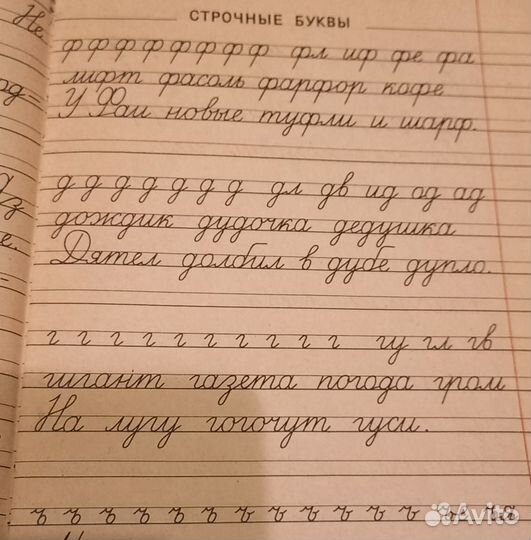 СТРОЧНЫЕ БУКВЫ
Не
ф ф ф ф ф ф ф ф фл иф фе фа
лифт фасоль фарфор кофе
У Фаи новые туфли и шарф.
д д д д д д д дл дв ид од ад
дождик дудочка дедушка
Дятел долбил в дубе дупло.
г г г г г г г г г г гу гл гв
гигант газета погода гром
На лугу гогочут гуси.
ъ ъ ъ ъ ъ ъ ъ ъ ъ ъ ъ ъ
Avito